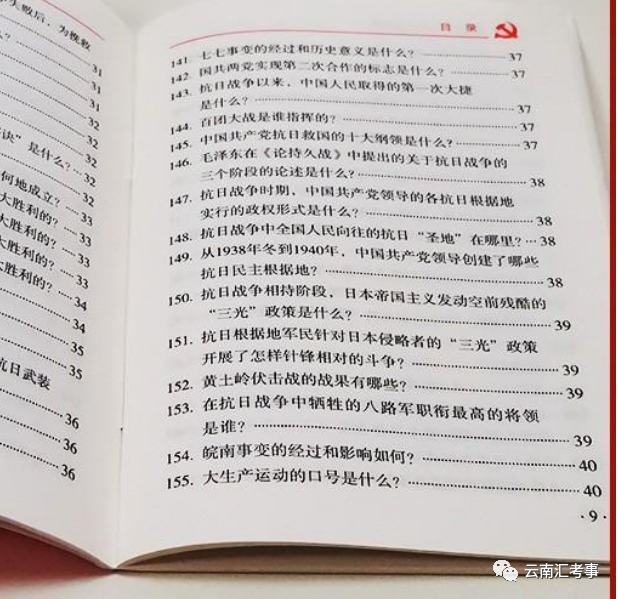 失败后，为挽救
31
31
31
31
32
诀”是什么？…32
32
何地成立？…33
大胜利的？…33
大胜利的？…33
大胜利的？…33
大胜利的？…34
34
35
35
抗日武装
36
36
36
目 录
141. 七七事变的经过和历史意义是什么？…37
142. 国共两党实现第二次合作的标志是什么？…37
143. 抗日战争以来，中国人民取得的第一次大捷
是什么？…37
144. 百团大战是谁指挥的？…37
145. 中国共产党抗日救国的十大纲领是什么？…37
146. 毛泽东在《论持久战》中提出的关于抗日战争的
三个阶段的论述是什么？…38
147. 抗日战争时期，中国共产党领导的各抗日根据地
实行的政权形式是什么？…38
148. 抗日战争中全国人民向往的抗日“圣地”在哪里？…38
149. 从1938年冬到1940年，中国共产党领导创建了哪些
抗日民主根据地？…38
150. 抗日战争相持阶段，日本帝国主义发动空前残酷的
“三光”政策是什么？…39
151. 抗日根据地军民针对日本侵略者的“三光”政策
开展了怎样针锋相对的斗争？…39
152. 黄土岭伏击战的战果有哪些？…39
153. 在抗日战争中牺牲的八路军职衔最高的将领
是谁？…39
154. 皖南事变的经过和影响如何？…40
155. 大生产运动的口号是什么？…40
·9·
云南汇考事